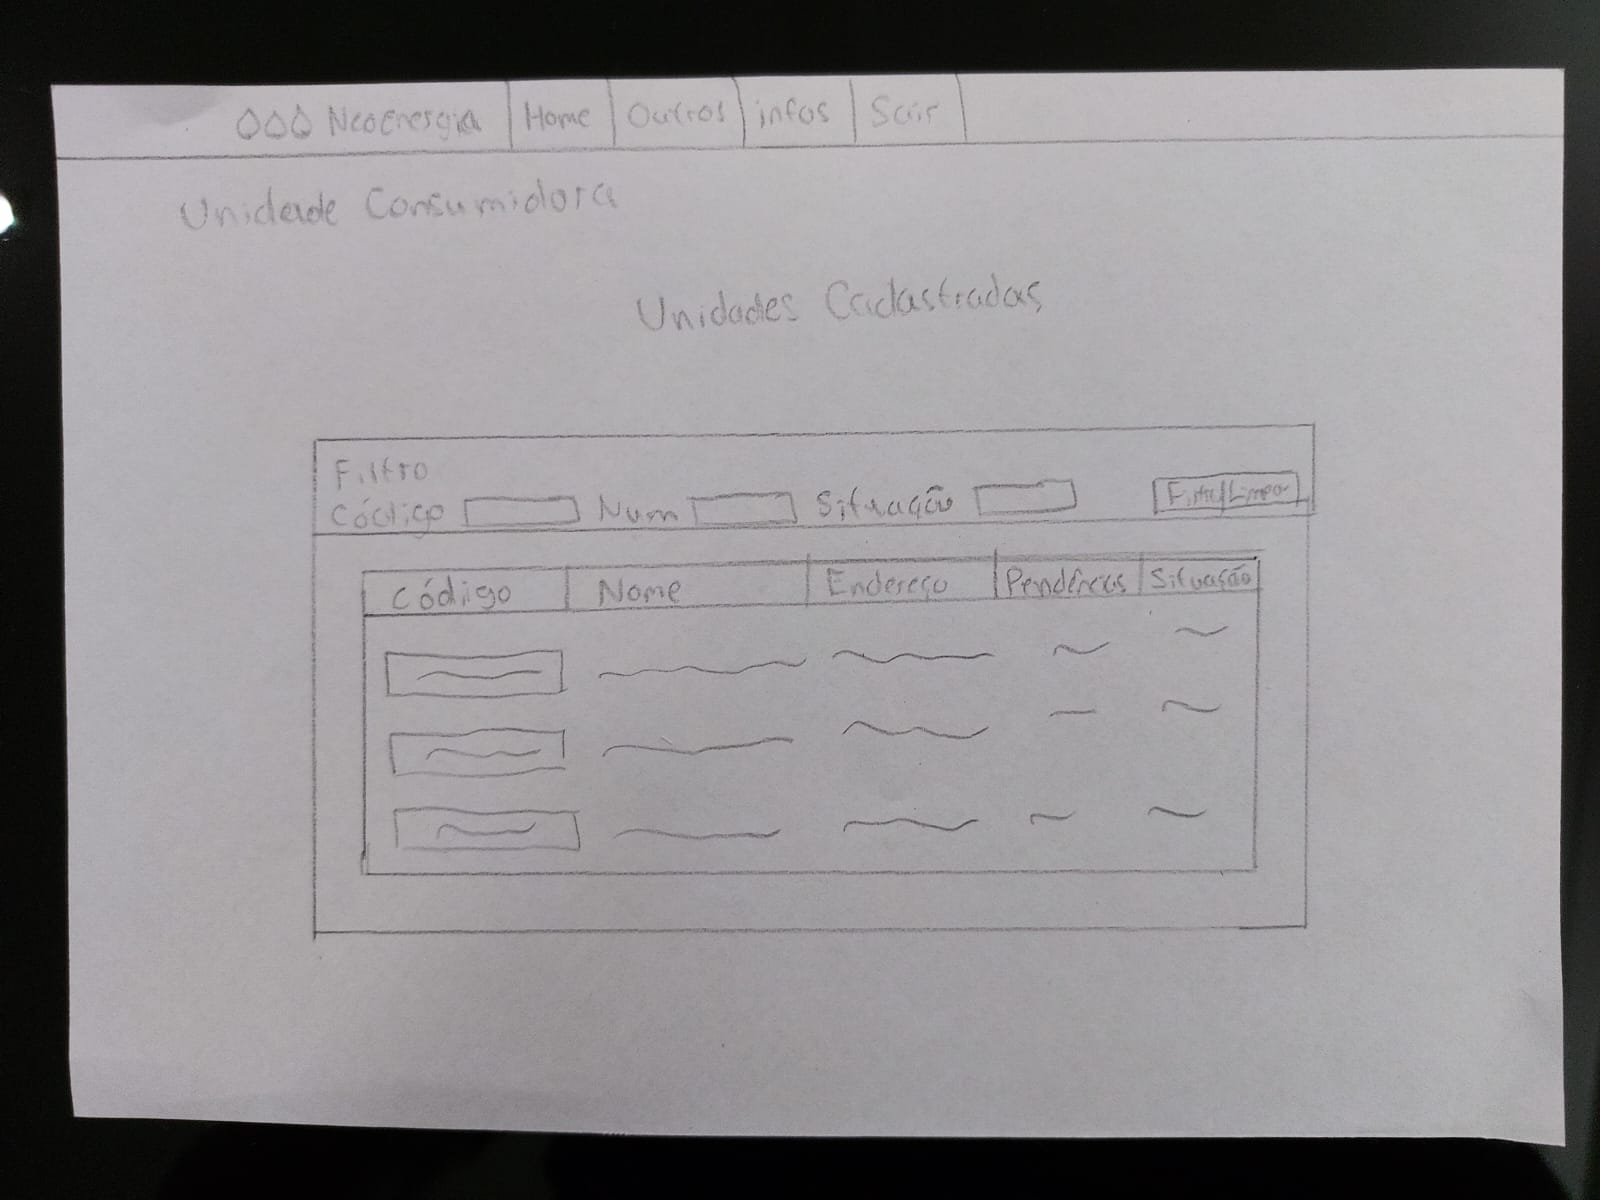 NeoEnergia Home Outros infos Sair
Unidade Consumidora
Unidades Cadastradas
Filtro
Código Num Situação Filtrar Limpar
Código Nome Endereço Pendências Situação